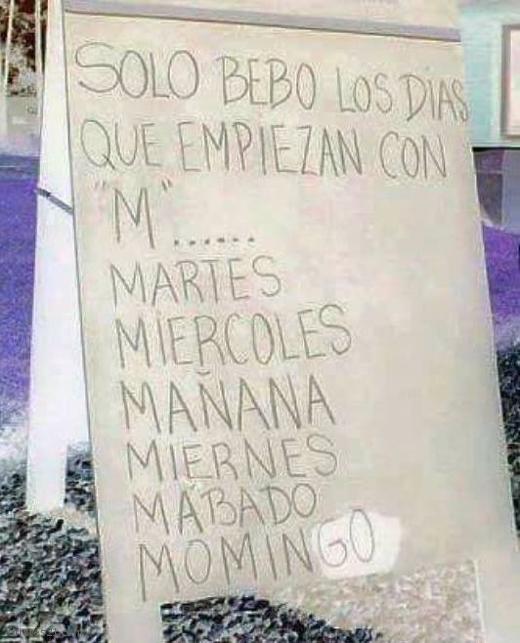 SOLO BEBO LOS DIAS
QUE EMPIEZAN CON
"M"......
MARTES
MIERCOLES
MAÑANA
MIERNES
MABADO
MOMINGO